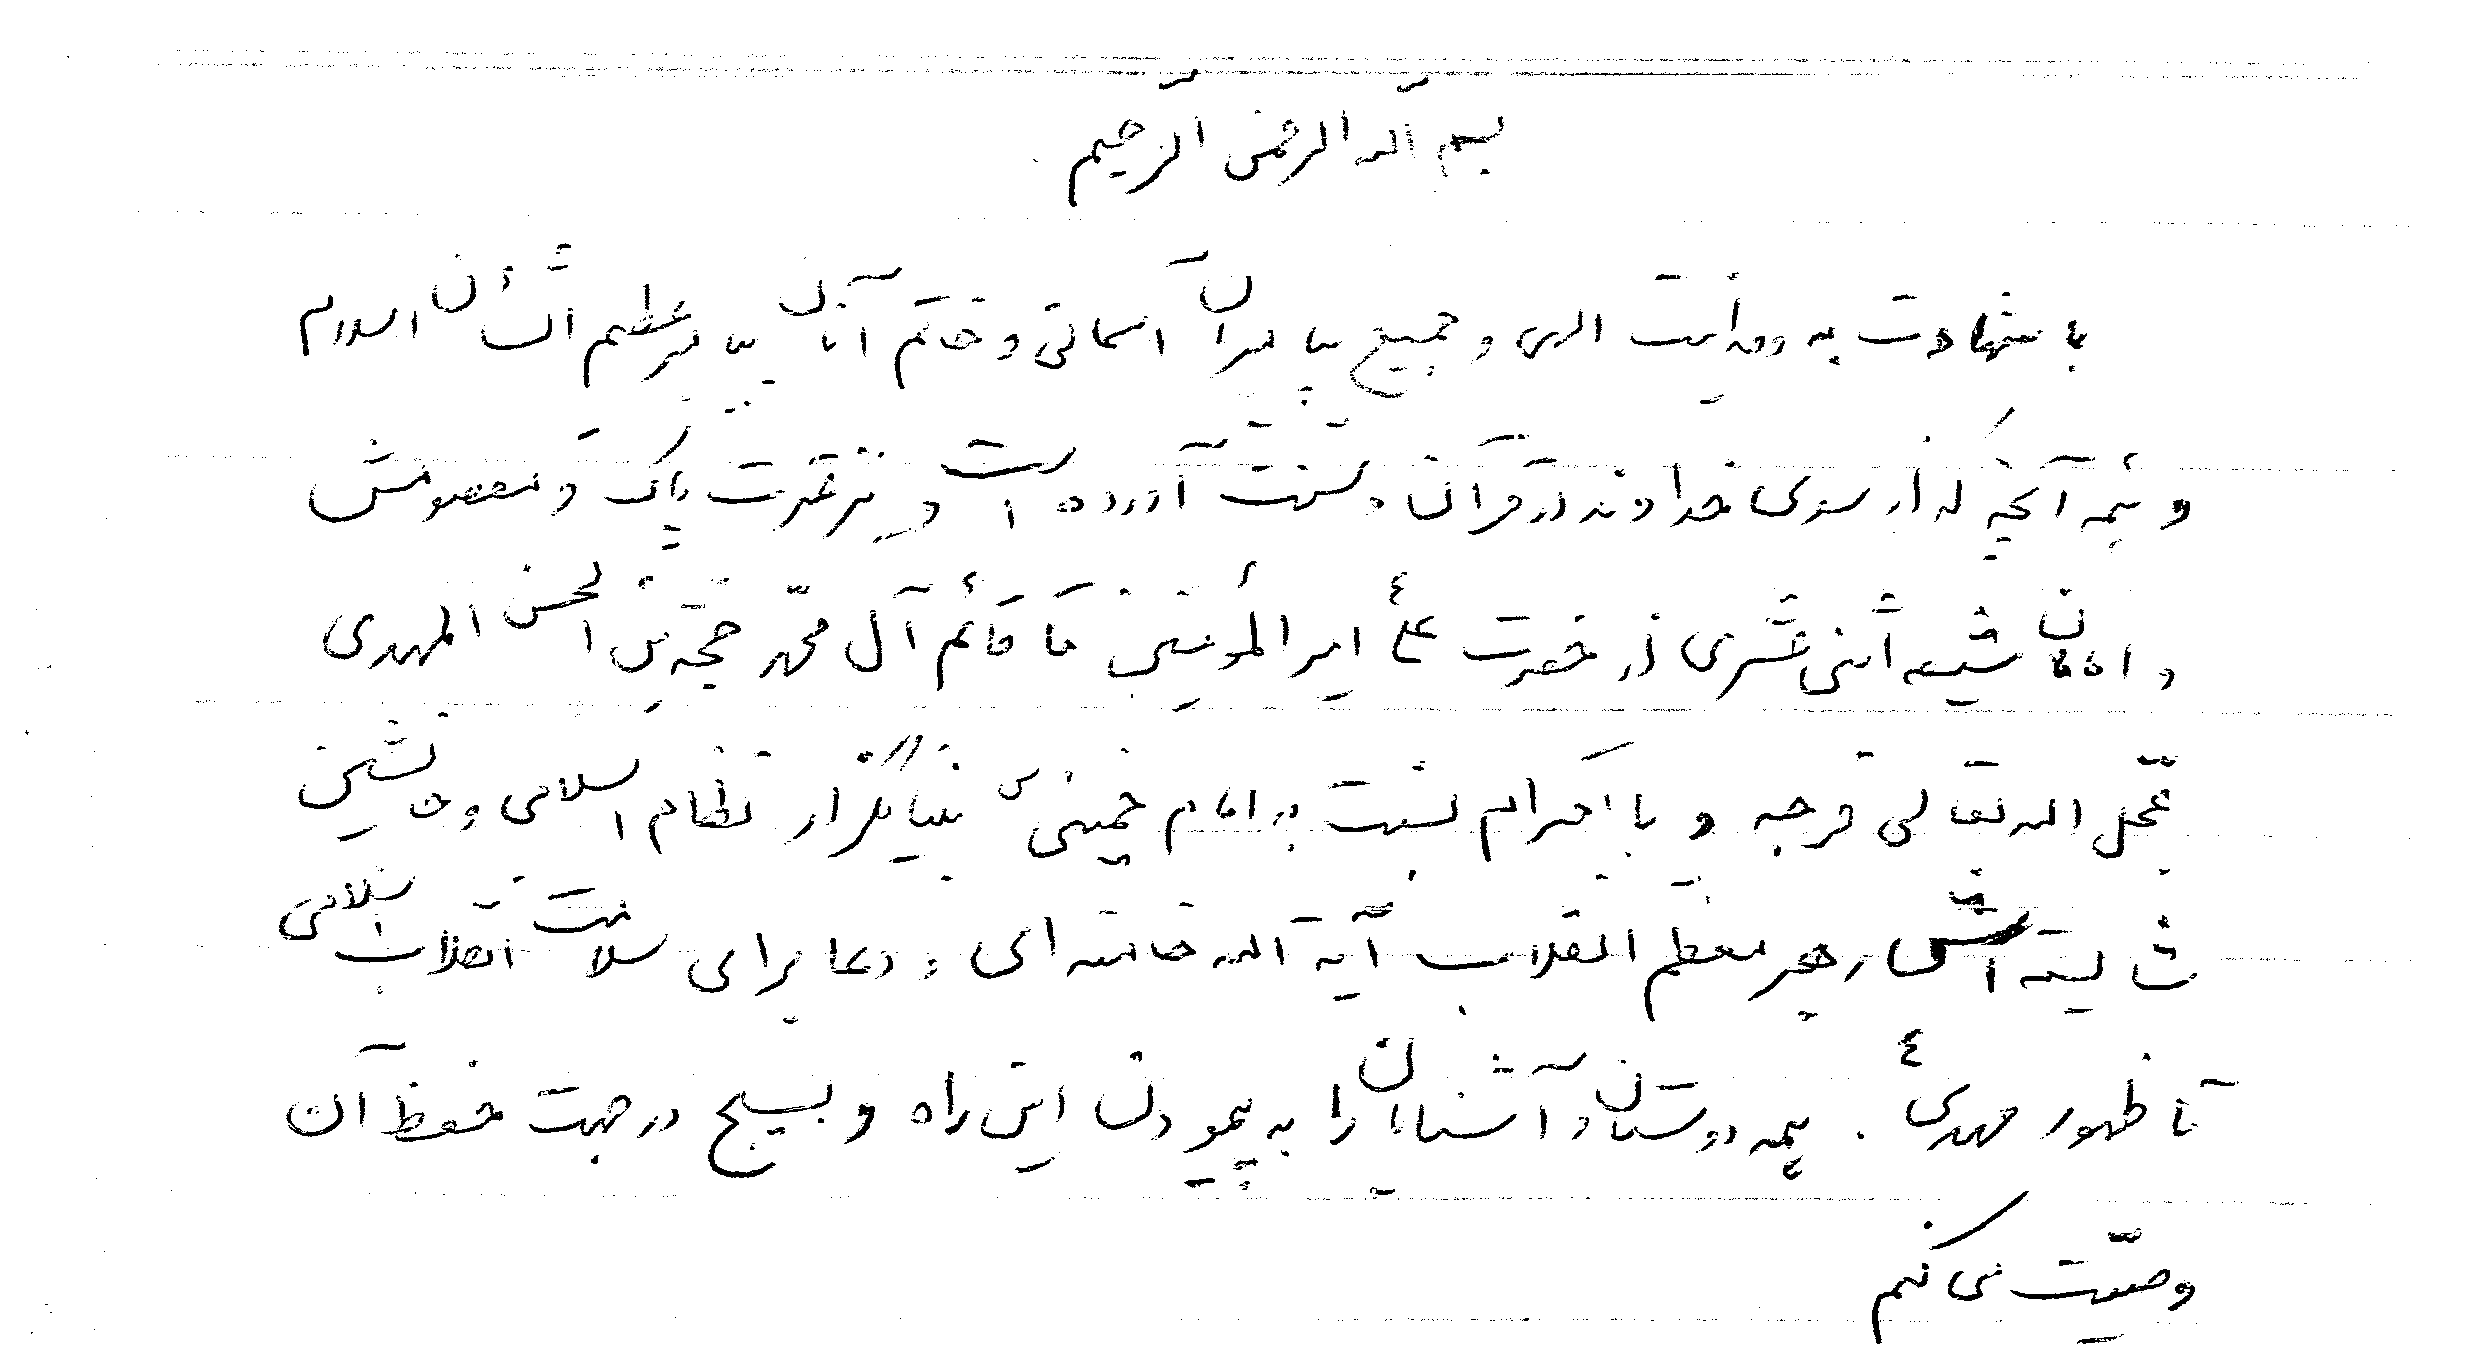 بسم الله الرحمن الرحیم
با شهادت به وحدانیت الهی و جمیع پیامبران آسمانی و خاتم آنان پیامبر عظیم الشأن اسلام
و همه آنچه که از سوی خداوند در قرآن و سنت آورده است و نیز عترت پاک و معصومش
و امامان شیعه اثنی عشری از حضرت علیؑ امیر المؤمنین تا قائم آل محمّد حجة بن الحسن المهدی
عجّل الله تعالی فرجه و با احترام نسبت به امام خمینی بنیانگزار نظام اسلامی و جانشین
شایسته اش رهبر معظم انقلاب آیة الله خامنه ای و دعا برای سلامت انقلاب اسلامی
تا ظهور مهدیؑ. همه دوستان و آشنایان را به پیمودن این راه و بسیج در جهت حفظ آن
وصیّت می کنم